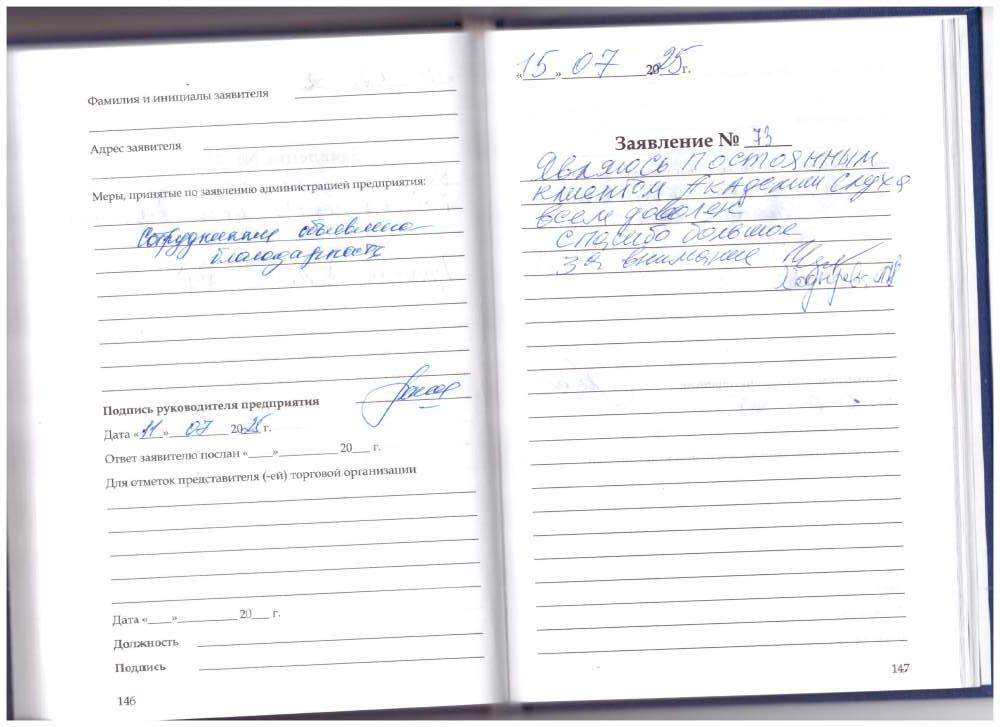 Фамилия и инициалы заявителя
Адрес заявителя
Меры, принятые по заявлению администрацией предприятия:
объявлена
благодарность
Подпись руководителя предприятия
Дата «11» 07 2025 г.
Ответ заявителю послан «____»__________ 20___ г.
Для отметок представителя (-ей) торговой организации
Дата «____»__________ 20___ г.
Должность
Подпись
146
«15» 07 2025г.
Заявление № 73
Являюсь постоянным
клиентом Академии слуха
всем доволен
спасибо большое
за внимание
147